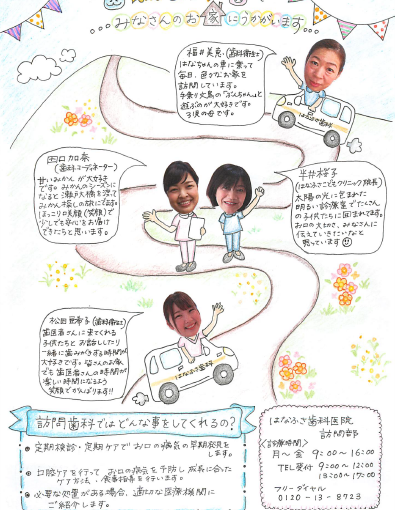 みなさんのお家にうかがいます…
相井美恵(歯科衛生士)
はなちゃんの車に乗って
毎日、色々なお家を
訪問しています。
手乗り文鳥の「ぶんちゃん」と
遊ぶのが大好きです。
3児の母です。
はなぶさ歯科
田口加奈
(歯科コーディネーター)
甘いみかんが大好き
です。みかんのシーズンに
なると瀬戸大橋を渡って
みかん探しの旅にでます。
ほっこり笑顔(笑顔)で
少しでも安心をお届け
できたらと思います。
半井裕子
(はなふさこどもクリニック院長)
太陽の光に包まれた
明るい診療室でたくさん
の子供たちに囲まれてます。
お口の大切さ、みなさんに
伝えていきたいなと
思っています
松田恵希子(歯科衛生士)
歯医者さんに来てくれる
子供たちとお話ししたり
一緒に歯みがきする時間が
大好きです。皆さんのお家
でも歯医者さんの時間が
楽しい時間になるよう
笑顔でがんばります!!
はなふさ歯科
訪問歯科ではどんな事をしてくれるの?
定期検診・定期ケアでお口の病気の早期発見を
します。
口腔ケアを行ってお口の病気を予防し成長に合った
ケア方法、食事指導を行います。
必要な処置がある場合、適切な医療機関に
ご紹介します。
はなふさ歯科医院
訪問部
〈診療時間〉
月〜金 9:00〜16:00
TEL受付 9:00〜12:00
13:00〜17:00
フリーダイヤル
0120-13-8723